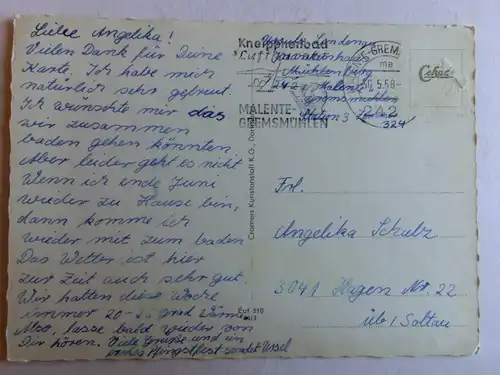 Liebe Angelika!
Vielen Dank für Deine
Karte. Ich habe mich
natürlich sehr gefreut.
Ich wünschte mir das
wir zusammen
baden gehen könnten.
Aber leider geht es nicht
Wenn ich ende Juni
wieder zu Hause bin,
dann komme ich
wieder mit zum baden
Das Wetter ist hier
zur Zeit auch sehr gut.
Wir hatten die Woche
immer 20- grad Wärme
Also, lasse bald wieder von
Dir hören. Viele Grüsse und ein
Pfingstfest sendet Ursel
Cramers Kunstanstalt K.G., Do
Eut 510
Kneippheilbad
Luft
MALENTE-
GREMSMÜHLEN
Mühlenburg
242 Malente
Gremsmühlen
324
TE-GREM
me
5.68-
242
Cekade
Frl.
Angelika Schulz
3041 Nr. 22
üb/ Soltau